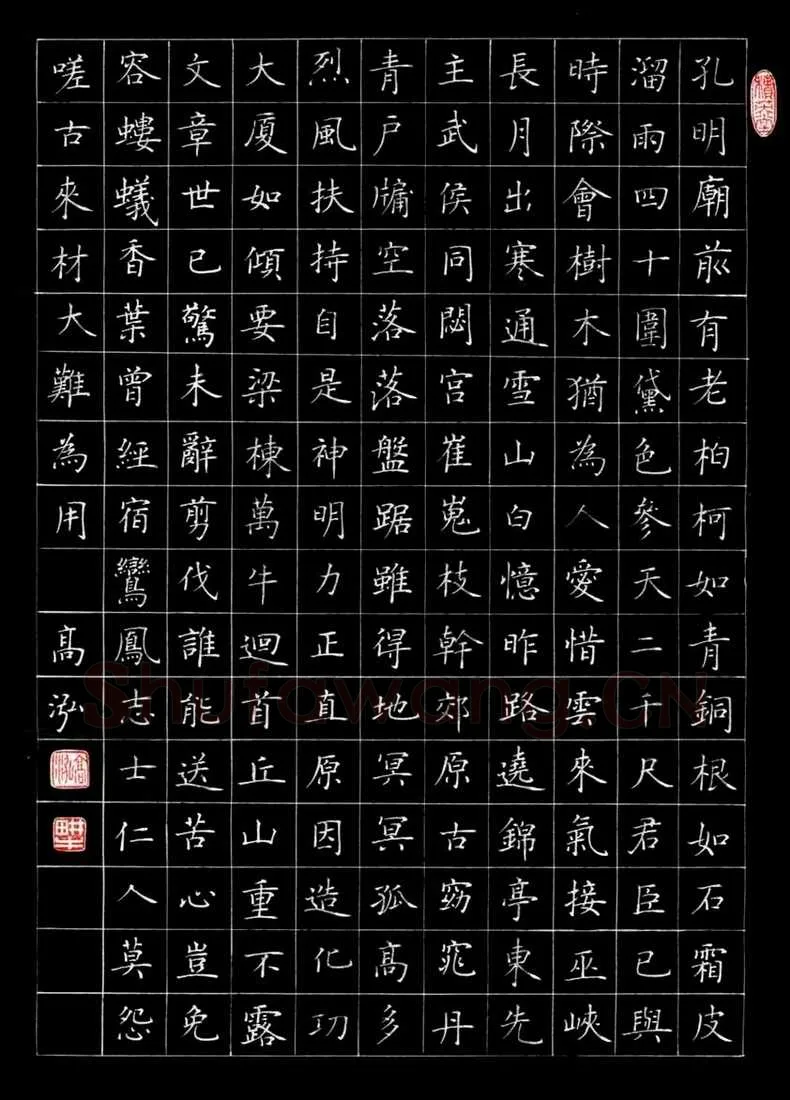 孔明廟前有老柏柯如青銅根如石霜皮
溜雨四十圍黛色參天二千尺君臣已與
時際會樹木猶為人愛惜雲來氣接巫峽
長月出寒通雪山白憶昨路遶錦亭東先
主武侯同閟宮崔嵬枝幹郊原古窈窕丹
青戶牖空落落盤踞雖得地冥冥孤髙多
烈風扶持自是神明力正直原因造化功
大厦如傾要梁棟萬牛迴首丘山重不露
文章世已驚未辭剪伐誰能送苦心豈免
容螻蟻香葉曾經宿鸞鳳志士仁人莫怨
嗟古來材大難為用 髙泓
Shufawang.CN